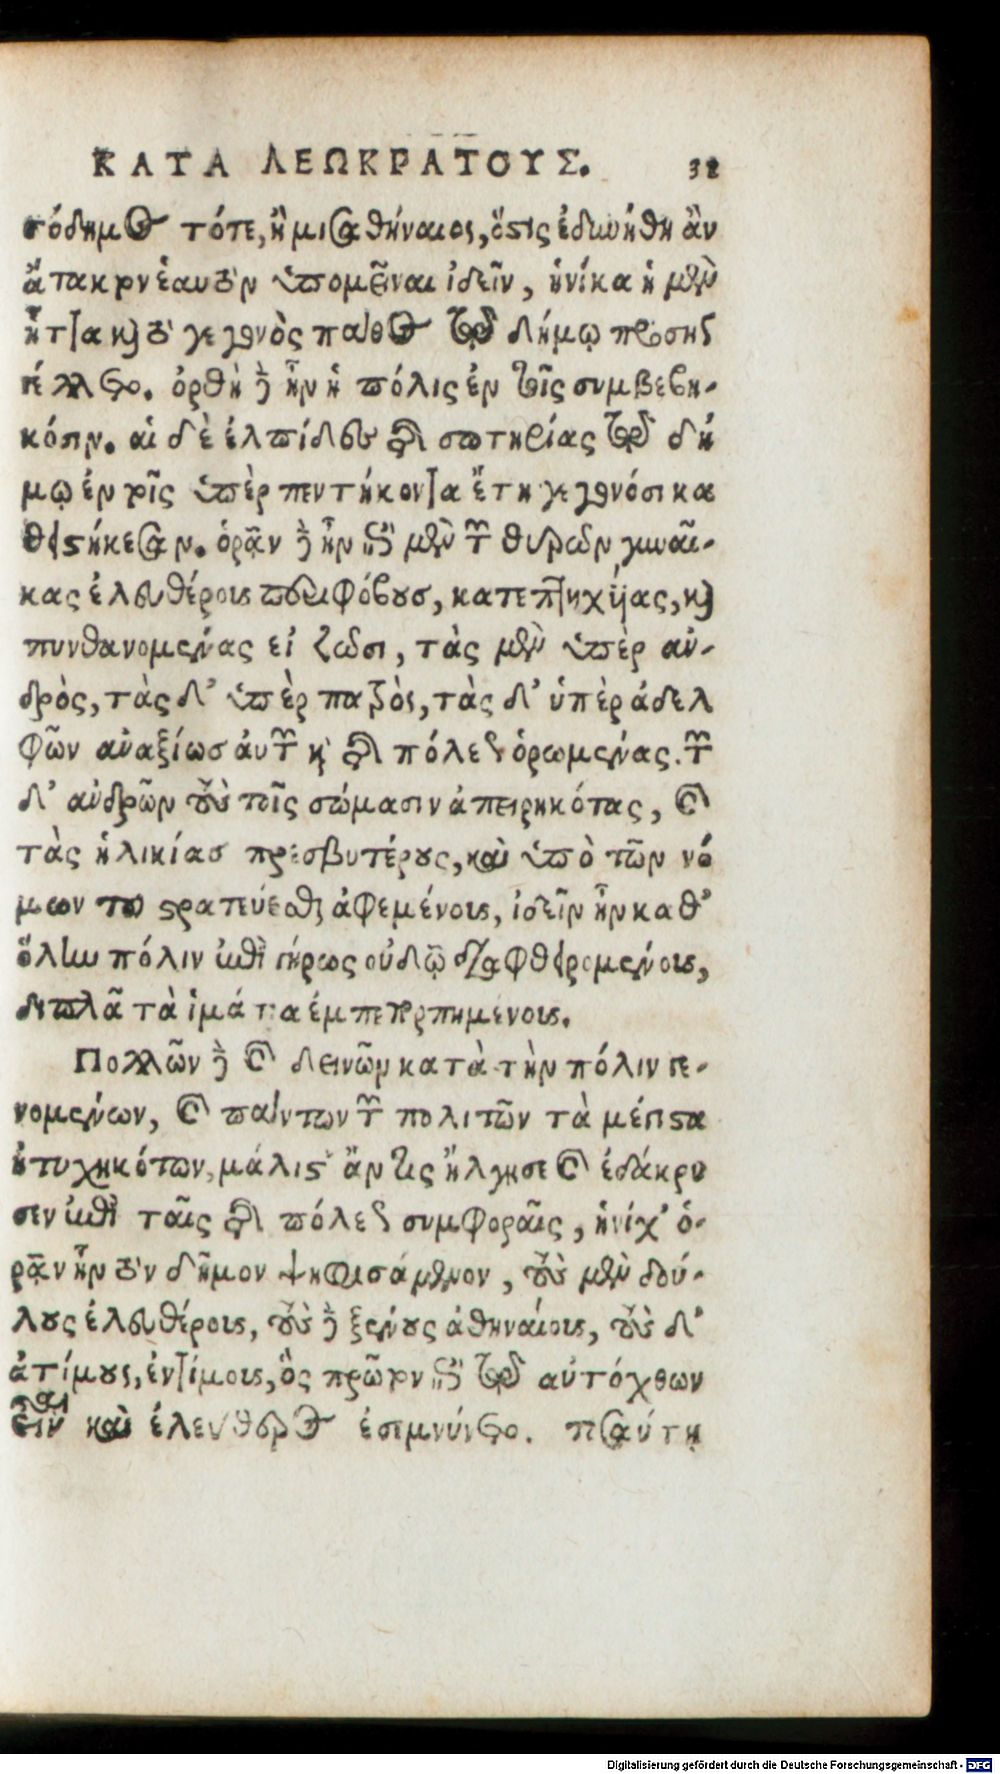 ΚΑΤΑ ΛΕΩΚΡΑΤΟΥΣ. 32
τόδημος τότε, ἢ μισαθήναιος, ὅστις ἐδυνήθη ἂν
ἄτακτον ἑαυτὸν ὑπομεῖναι ἰδεῖν, ἡνίκα ἡ μὲν
ἧττα καὶ τὸ γεγενὸς πάθος τῷ δήμῳ προσηγ
γέλλετο. ὀρθὴ δὲ ἦν ἡ πόλις ἐν τοῖς συμβεβη-
κόσιν. αἱ δὲ ἐλπίδες τῆς σωτηρίας τῷ δή
μῳ ἐν τοῖς ὑπὲρ πεντήκοντα ἔτη γεγενόσι κα
θειστήκεσαν. ὁρᾷν δὲ ἦν ἐπὶ μὲν τῶν θυρῶν γυναῖ-
κας ἐλευθέρους περιφόβους, κατεπτηχύας, καὶ
πυνθανομένας εἰ ζῶσι, τὰς μὲν ὑπὲρ ἀν-
δρὸς, τὰς δ' ὑπὲρ πατρὸς, τὰς δ' ὑπὲρ ἀδελ
φῶν ἀναξίως αὑτῶν καὶ τῆς πόλεως ὁρωμένας. τῶν
δ' ἀνδρῶν τοὺς τοῖς σώμασιν ἀπειρηκότας, καὶ
τὰς ἡλικίας πρεσβυτέρους, καὶ ὑπὸ τῶν νό
μων τοῦ στρατεύεσθαι ἀφεμένους, ἰδεῖν ἦν καθ'
ὅλην πόλιν ἐπὶ γήρως οὐδῷ διαφθειρομένους,
διπλᾶ τὰ ἱμάτια ἐμπεπορπημένους.
Πολλῶν δὲ καὶ δεινῶν κατὰ τὴν πόλιν γε-
νομένων, καὶ πάντων τῶν πολιτῶν τὰ μέγιστα
ἠτυχηκότων, μάλιστ' ἄν τις ἤλγησε καὶ ἐδάκρυ
σεν ἐπὶ ταῖς τῆς πόλεως συμφοραῖς, ἡνίχ' ὁ-
ρᾷν ἦν τὸν δῆμον ψηφισάμενον, τοὺς μὲν δού-
λους ἐλευθέρους, τοὺς δὲ ξένους ἀθηναίους, τοὺς δ'
ἀτίμους, ἐντίμους, ὃς πρῶτον ἐπὶ τῷ αὐτόχθων
εἶναι καὶ ἐλεύθερος ἐσεμνύνετο. τοσαύτῃ
Digitalisierung gefördert durch die Deutsche Forschungsgemeinschaft - DFG